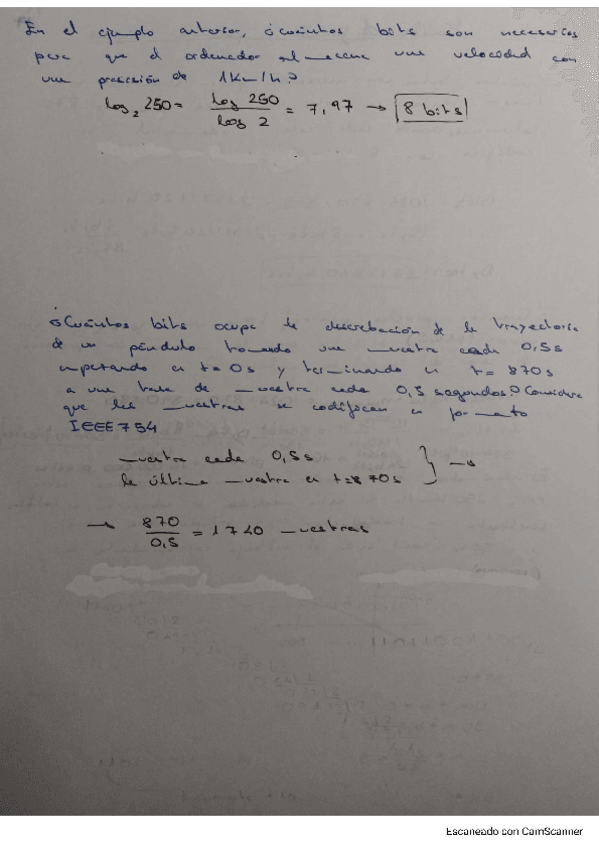 En el ejemplo anterior, ¿cuántos bits son necesarios
para que el ordenador almacene una velocidad con
una precisión de 1 Km/h?
log₂ 250 = log 250 / log 2 = 7,97 → 8 bits
¿Cuántos bits ocupa la discretización de la trayectoria
de un péndulo tomando una muestra cada 0,5s
empezando en t = 0s y terminando en t = 870s
a una tasa de muestra cada 0,5 segundos? Considere
que las muestras se codifican en formato
IEEE754
muestra cada 0,5s
la última muestra en t=870s } →
→ 870 / 0,5 = 1740 muestras
Escaneado con CamScanner